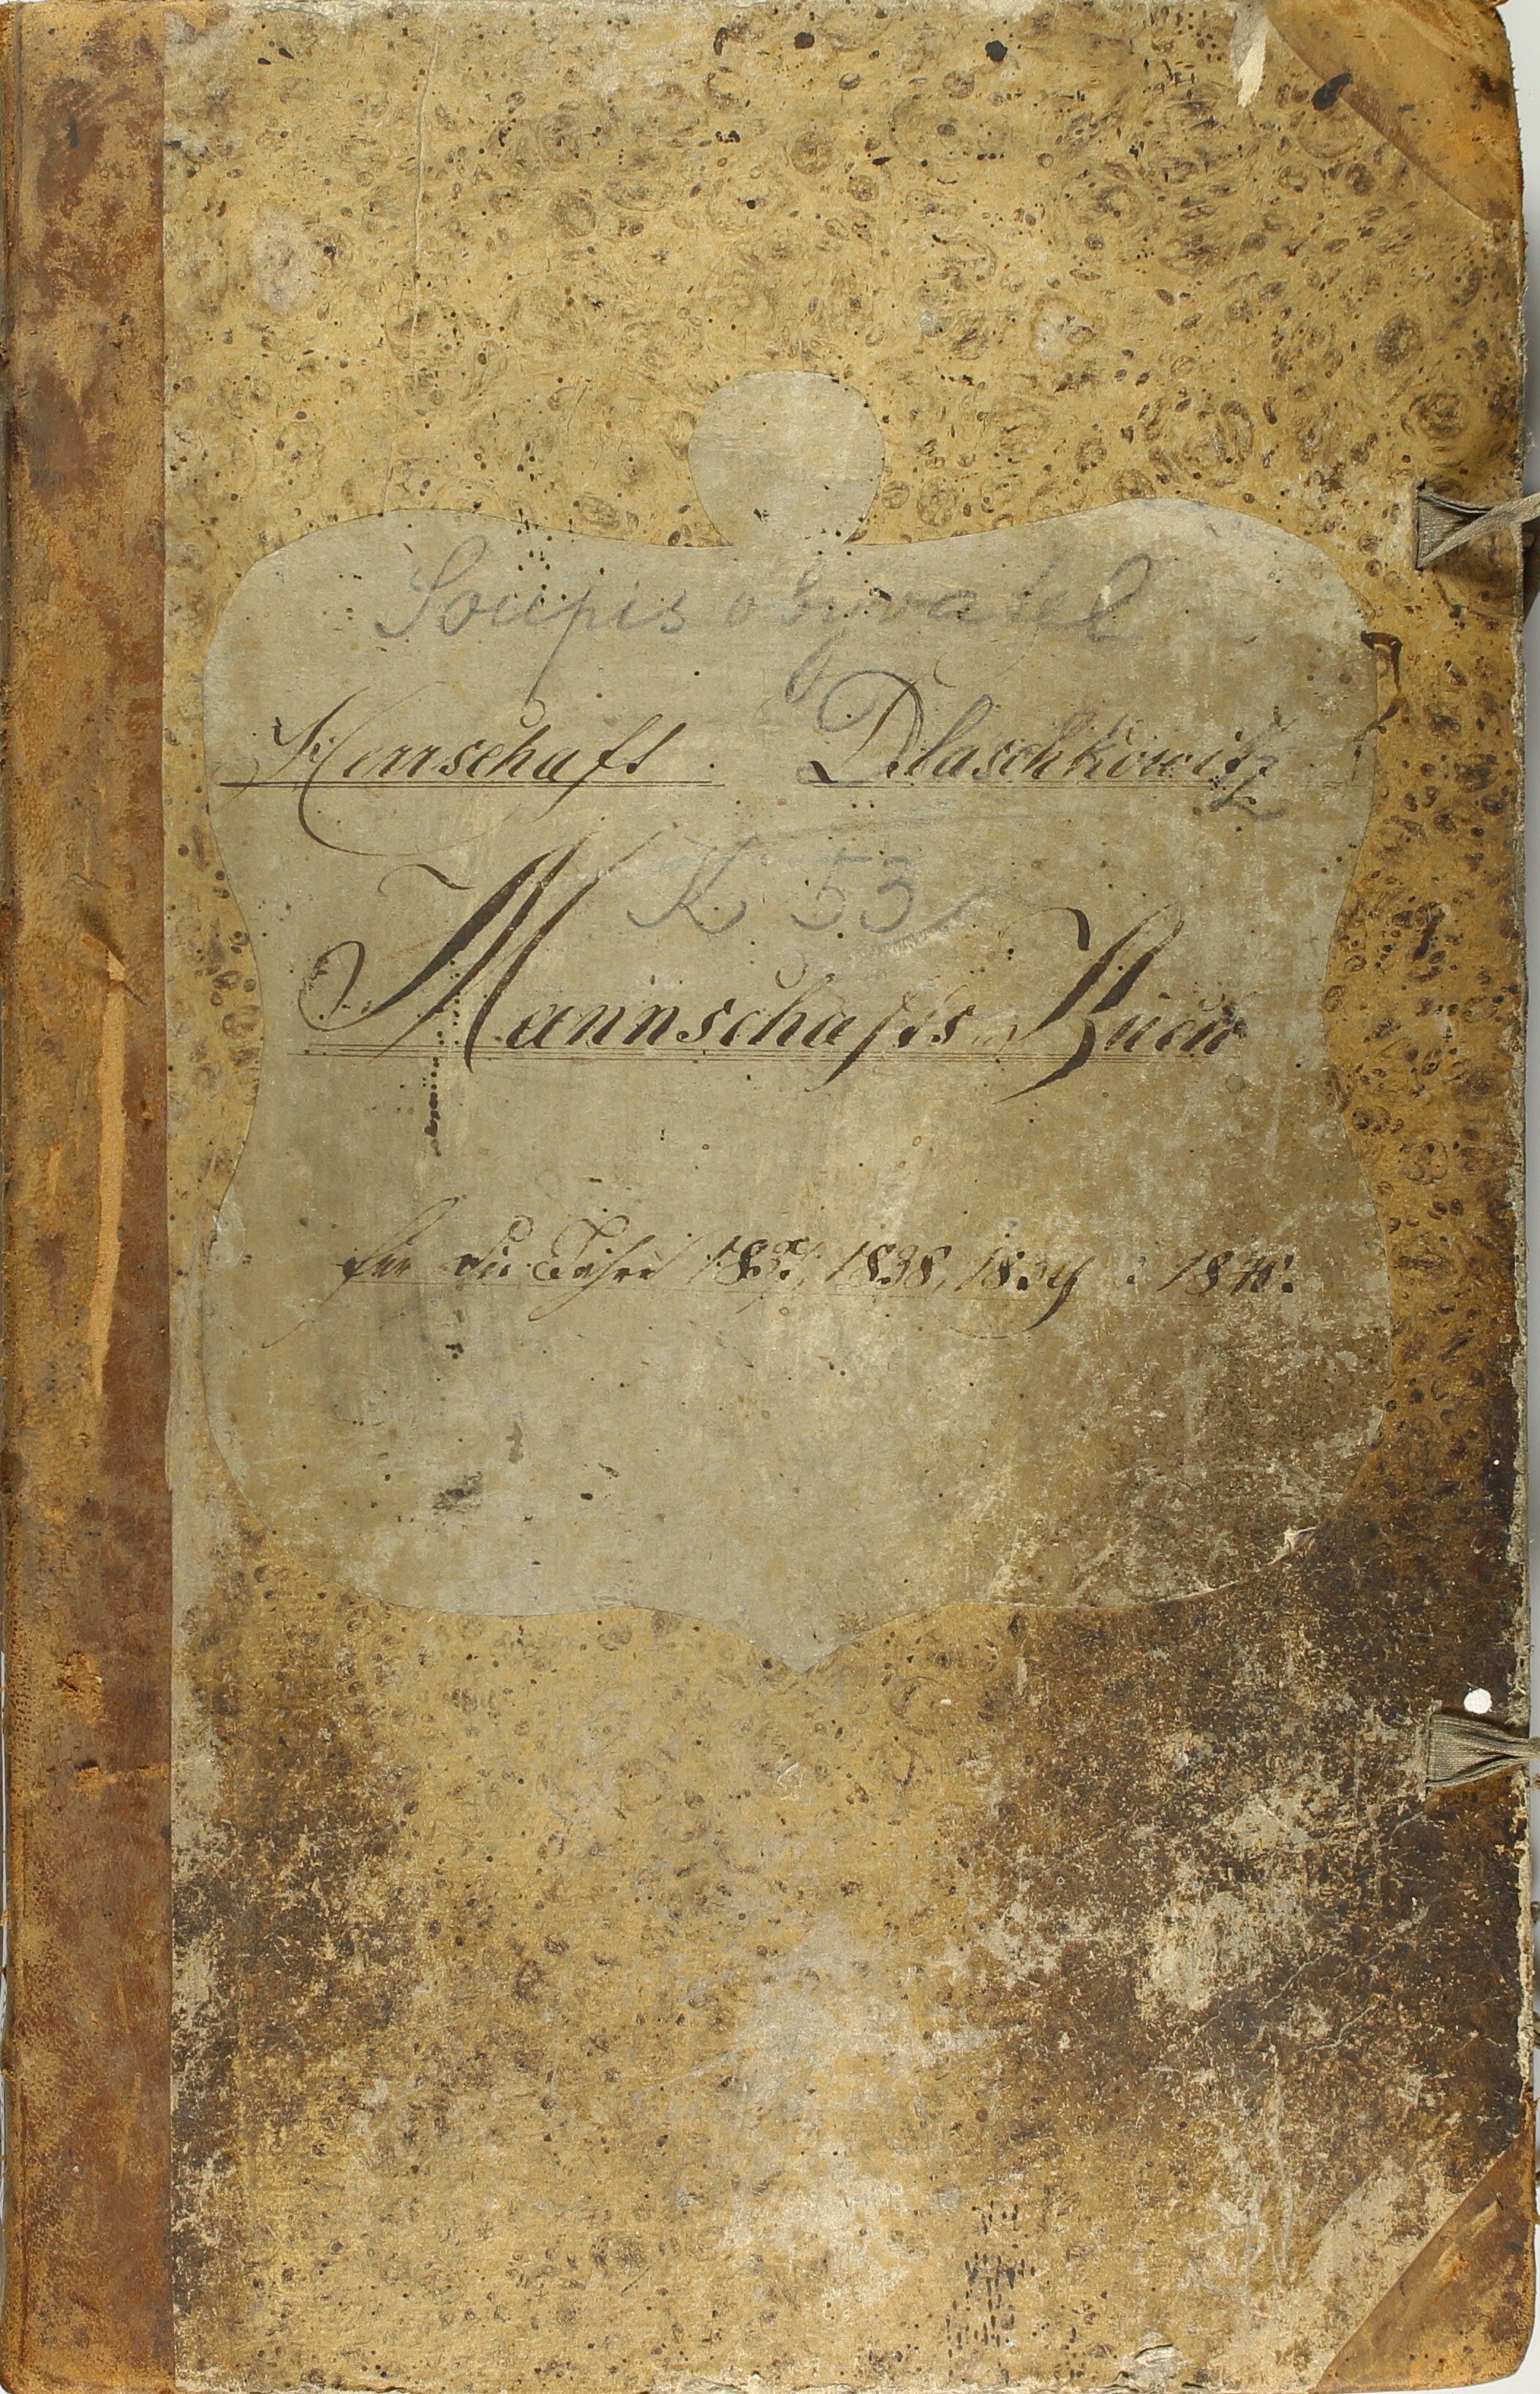 Soupis obyvatel
Herrschaft Dlaschkowitz
K 53
Mannschafts Buch
für die Jahre 1837, 1838, 1839